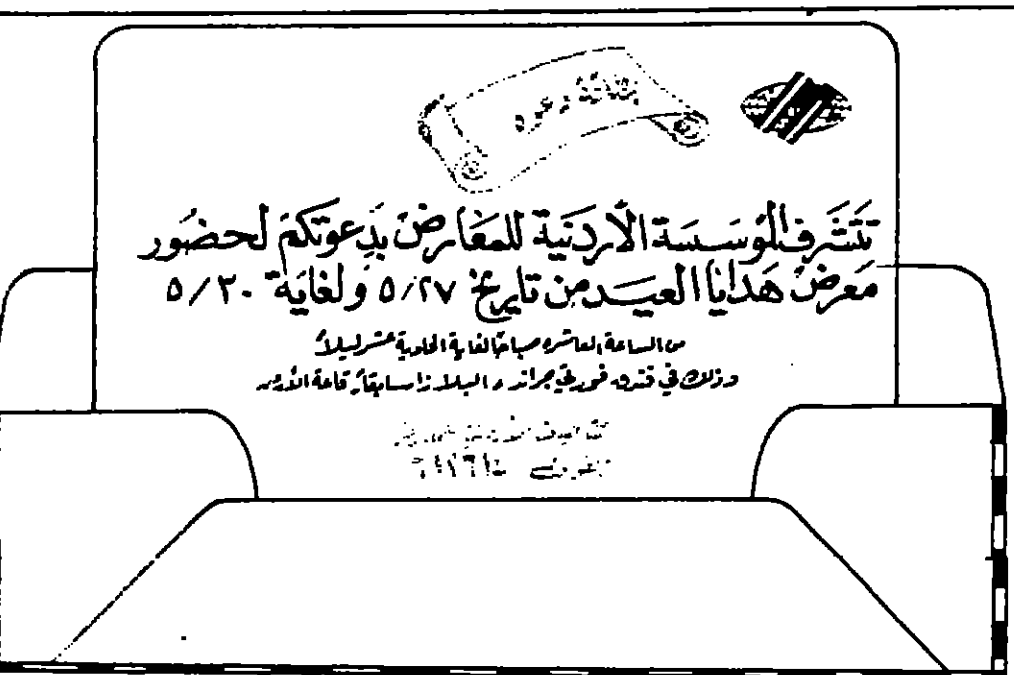 بطاقة دعوة
تتشرف المؤسسة الأردنية للمعارض بدعوتكم لحضور
معرض هدايا العيد من تاريخ ٥/٢٧ ولغاية ٥/٣٠
من الساعة العاشرة صباحاً لغاية الحادية عشر ليلاً
وذلك في فندق فورتي جراند ، البلازا سابقاً، قاعة الأردن